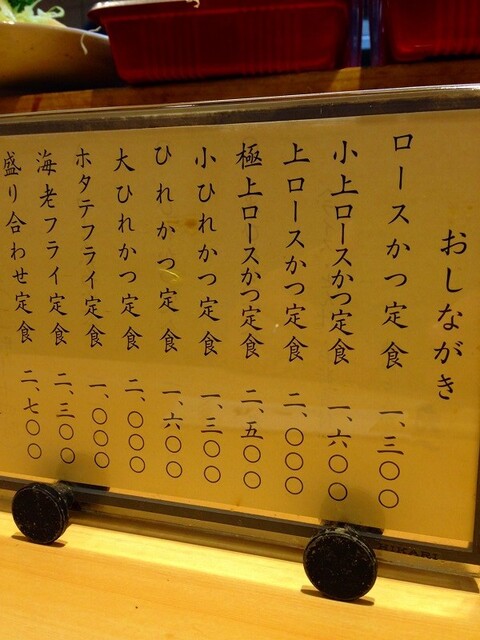 おしながき
ロースかつ定食 一、三〇〇
小上ロースかつ定食 一、六〇〇
上ロースかつ定食 二、〇〇〇
極上ロースかつ定食 二、五〇〇
小ひれかつ定食 一、三〇〇
ひれかつ定食 一、六〇〇
大ひれかつ定食 二、〇〇〇
ホタテフライ定食 一、〇〇〇
海老フライ定食 二、三〇〇
盛り合わせ定食 二、七〇〇